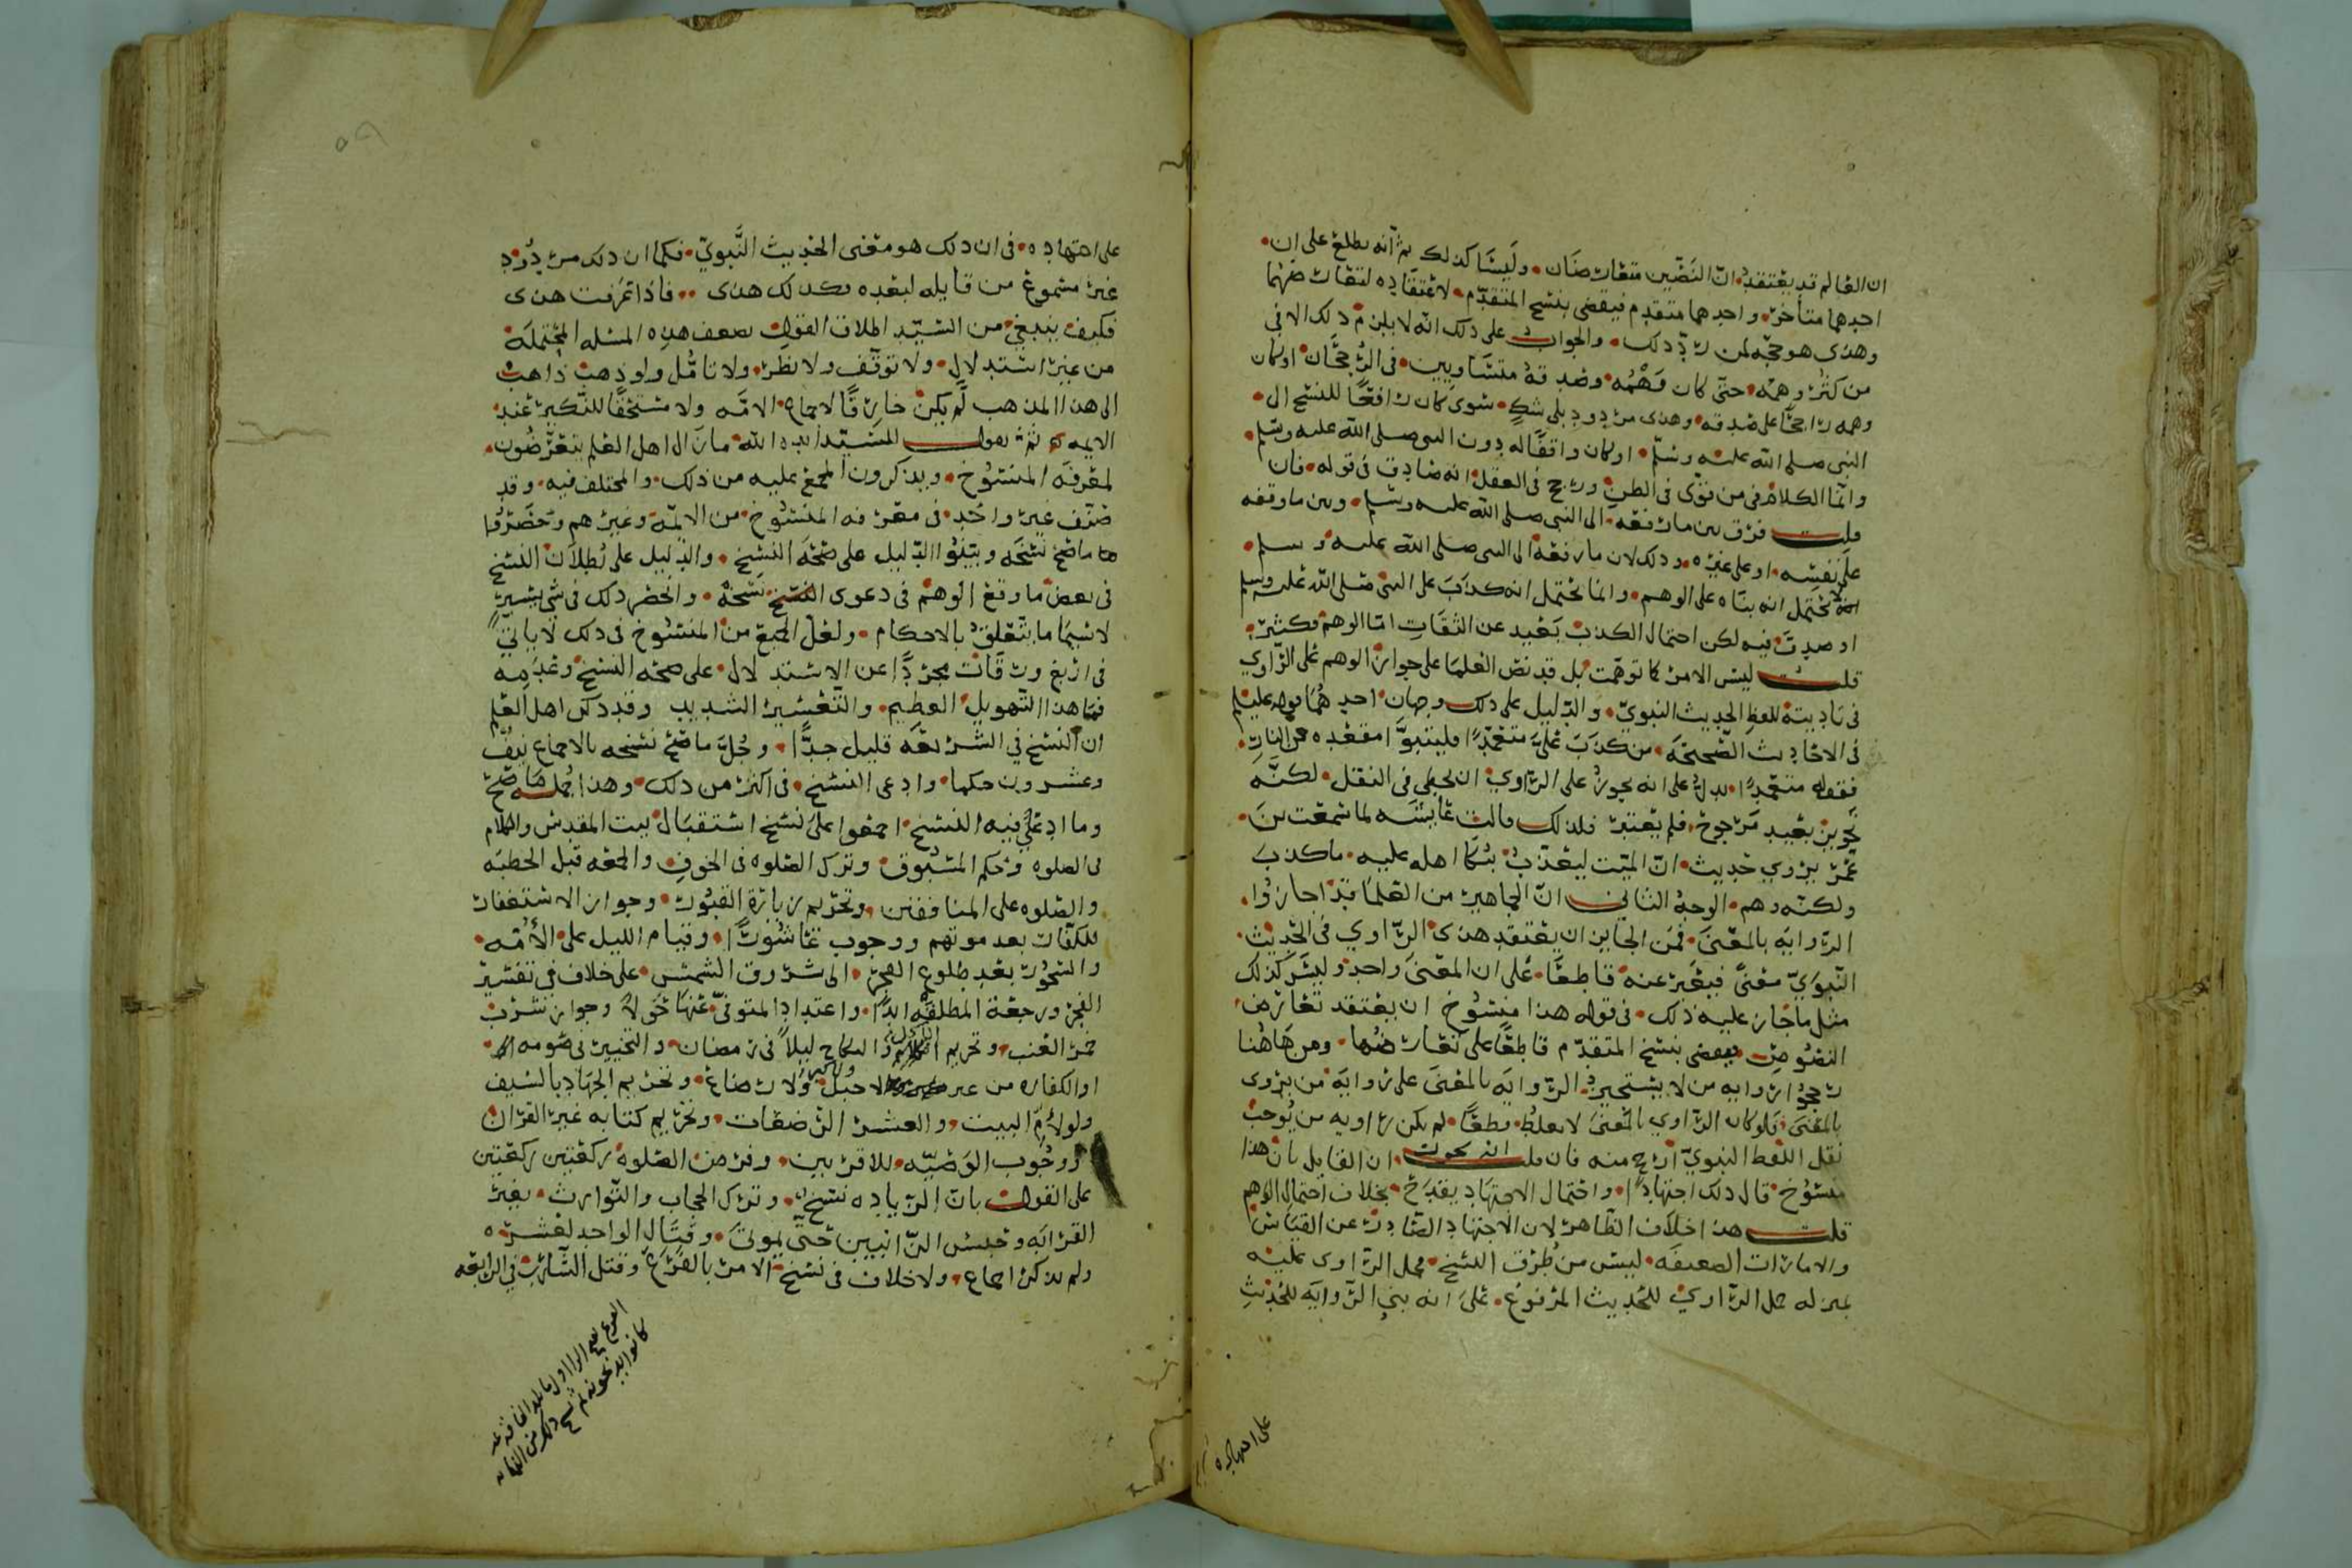 ان العالم قد يعتقد ان النصين متعارضان وليسا كذلك ثم انه يطلع على ان
احدهما متأخر واحدهما متقدم فيقضي بنسخ المتقدم لاعتقاده لتعارضهما
وهذى هو حجة لمن رد ذلك والجواب على ذلك انه لا يلزم ذلك الا في
من كثر وهمه حتى كان وهمه وصدقه متساويين في الرجحان او كان
وهمه راجحا على صدقه وهذى مردود بلى شك سوى كان رافعا للنسخ الى
النبي صلى الله عليه وسلم او كان واقفا له دون النبي صلى الله عليه وسلم
وانما الكلام في من قوي في الظن ورجح في العقل انه صادق في قوله فان
قلت فرق بين ما رفعه الى النبي صلى الله عليه وسلم وبين ما وقفه
على نفسه او على غيره وذلك لان ما رفعه الى النبي صلى الله عليه وسلم
لا يحتمل انه بناه على الوهم وانما يحتمل انه كذب على النبي صلى الله عليه وسلم
او صدق فيه لكن احتمال الكذب بعيد عن الثقات اما الوهم فكثير
قلت ليس الامر كما توهمت بل قد نص العلما على جواز الوهم على الراوي
في تاديته للفظ الحديث النبوي والدليل على ذلك وجهان احدهما قوله عليلم
في الاحاديث الصحيحه من كذب علي متعمدا فليتبوا مقعده من النار
فقوله متعمدا يدل على انه يجوز على الراوي ان يخطي في النقل لكنه
تجويز بعيد مرجوح فلم يعتبر فلذلك قالت عايشه لما سمعت بن
عمر يروي حديث ان الميت ليعذب ببكا اهله عليه ما كذب
ولكنه وهم الوجه الثاني ان الجماهير من العلما قد اجازوا
الروايه بالمعنى فمن الجايز ان يعتقد هذى الراوي في الحديث
النبوي معنى فيعبر عنه قاطعا على ان المعنى واحد وليس كذلك
مثل ما جاز عليه ذلك في قوله هذا منسوخ ان يعتقد تعارض
النصوص فيقضي بنسخ المتقدم قاطعا على تعارضهما ومن هاهنا
رجحوا روايه من لا يستجيز الروايه بالمعنى على روايه من يروى
بالمعنى فلو كان الراوي بالمعنى لا يغلط قطعا لم يكن راويه من يوجب
نقل اللفظ النبوي ارجح منه فان قلت انه يجوز ان القايل بان هذا
منسوخ قال ذلك اجتهادا واحتمال الاجتهاد يقدح بخلاف احتمال الوهم
قلت هذا خلاف الظاهر لان الاجتهاد الصادر عن القياس
والامارات الضعيفه ليس من طرق النسخ فحمل الراوي عليه
بمنزله حمل الراوي للحديث المرفوع على انه بنى الروايه للحديث
على اجتهاده
على اجتهاده في ان ذلك هو معنى الحديث النبوي فكما ان ذلك مردود
غير مسموع من قايله لبعده فكذلك هذى فاذا عرفت هذى
فكيف ينبغي من السيد اطلاق القول بضعف هذه المسئله المحتمله
من غير استدلال ولا توقف ولا نظر ولا تامل ولو ذهب ذاهب
الى هذا المذهب لم يكن خارقا لاجماع الامه ولا مستحقا للنكير عند
الايمه ثم يقول السيد ايده الله ما زال اهل العلم يتعرضون
لمعرفه المنسوخ ويذكرون المجمع عليه من ذلك والمختلف فيه وقد
صنف غير واحد في معرفه المنسوخ من الائمة وغيرهم وحصروا
ما صح نسخه وبينوا الدليل على صحة النسخ والدليل على بطلان النسخ
في بعض ما وقع الوهم في دعوى نسخه وانحصر ذلك في شي يسير
لا سيما ما يتعلق بالاحكام ولعل الجميع من المنسوخ في ذلك لا ياتي
في اربع ورقات مجردا عن الاستدلال على صحه النسخ وعدمه
فما هذا التهويل العظيم والتعسير الشديد وقد ذكر اهل العلم
ان النسخ في الشريعه قليل جدا وجل ما صح نسخه بالاجماع نيف
وعشرون حكما وادعى النسخ في اكثر من ذلك وهذا جمله ما صح
وما ادعي فيه النسخ اجمعوا على نسخ استقبال بيت المقدس والكلام
في الصلوه وحكم المسبوق وترك الصلوه في الخوف والجمعه قبل الخطبه
والصلوه على المنافقين وتحريم زيارة القبور وجواز الاستغفار
للكفار بعد موتهم ووجوب عاشورا وقيام الليل على الأمه
والسحور بعد طلوع الفجر الى شروق الشمس على خلاف في تفسير
الفجر ورجعة المطلقه ابدا واعتداد المتوفى عنها حولا وجواز شرب
خمر العنب وتحريم الاكل والنكاح ليلا في رمضان والتخيير في صومه
او الكفاره من غير ولا حبل ولا رضاع وتحريم الجهاد بالسيف
ولو لأم البيت والعشر الرضعات وتحريم كتابه غير القران
ووجوب الوصيه للاقربين وفرض الصلوه ركعتين ركعتين
على القول بان الزياده نسخ وترك الحجاب والتوارث بغير
القرابه وحبس الزانيين حتى يموت وقتال الواحد لعشره
ولم يذكر اجماع ولا خلاف في نسخ الامر بالفرع وقتل الشارب في الرابعه
كانوا يذبحونه ثم نسخ ذلك